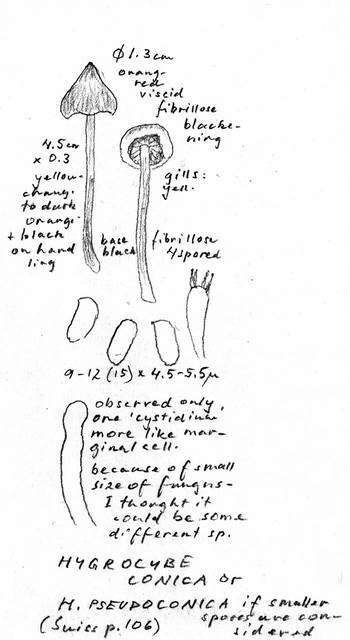 Ø 1.3 cm
orang-
red
viscid
fibrillose
blacke-
ning
4.5 cm
x 0.3
yellow-
chang.
to dark
orange
+ black
on hand
ling
gills:
yell.
base
black
fibrillose
4 spored
9-12 (15) x 4.5-5.5µ
observed only
one 'cystidium'
more like mar-
ginal cell.
because of small
size of fungus-
I thought it
could be some
different sp.
HYGROCYBE
CONICA or
H. PSEUDOCONICA if smaller
spores are con-
sidered
(Suiss p. 106)